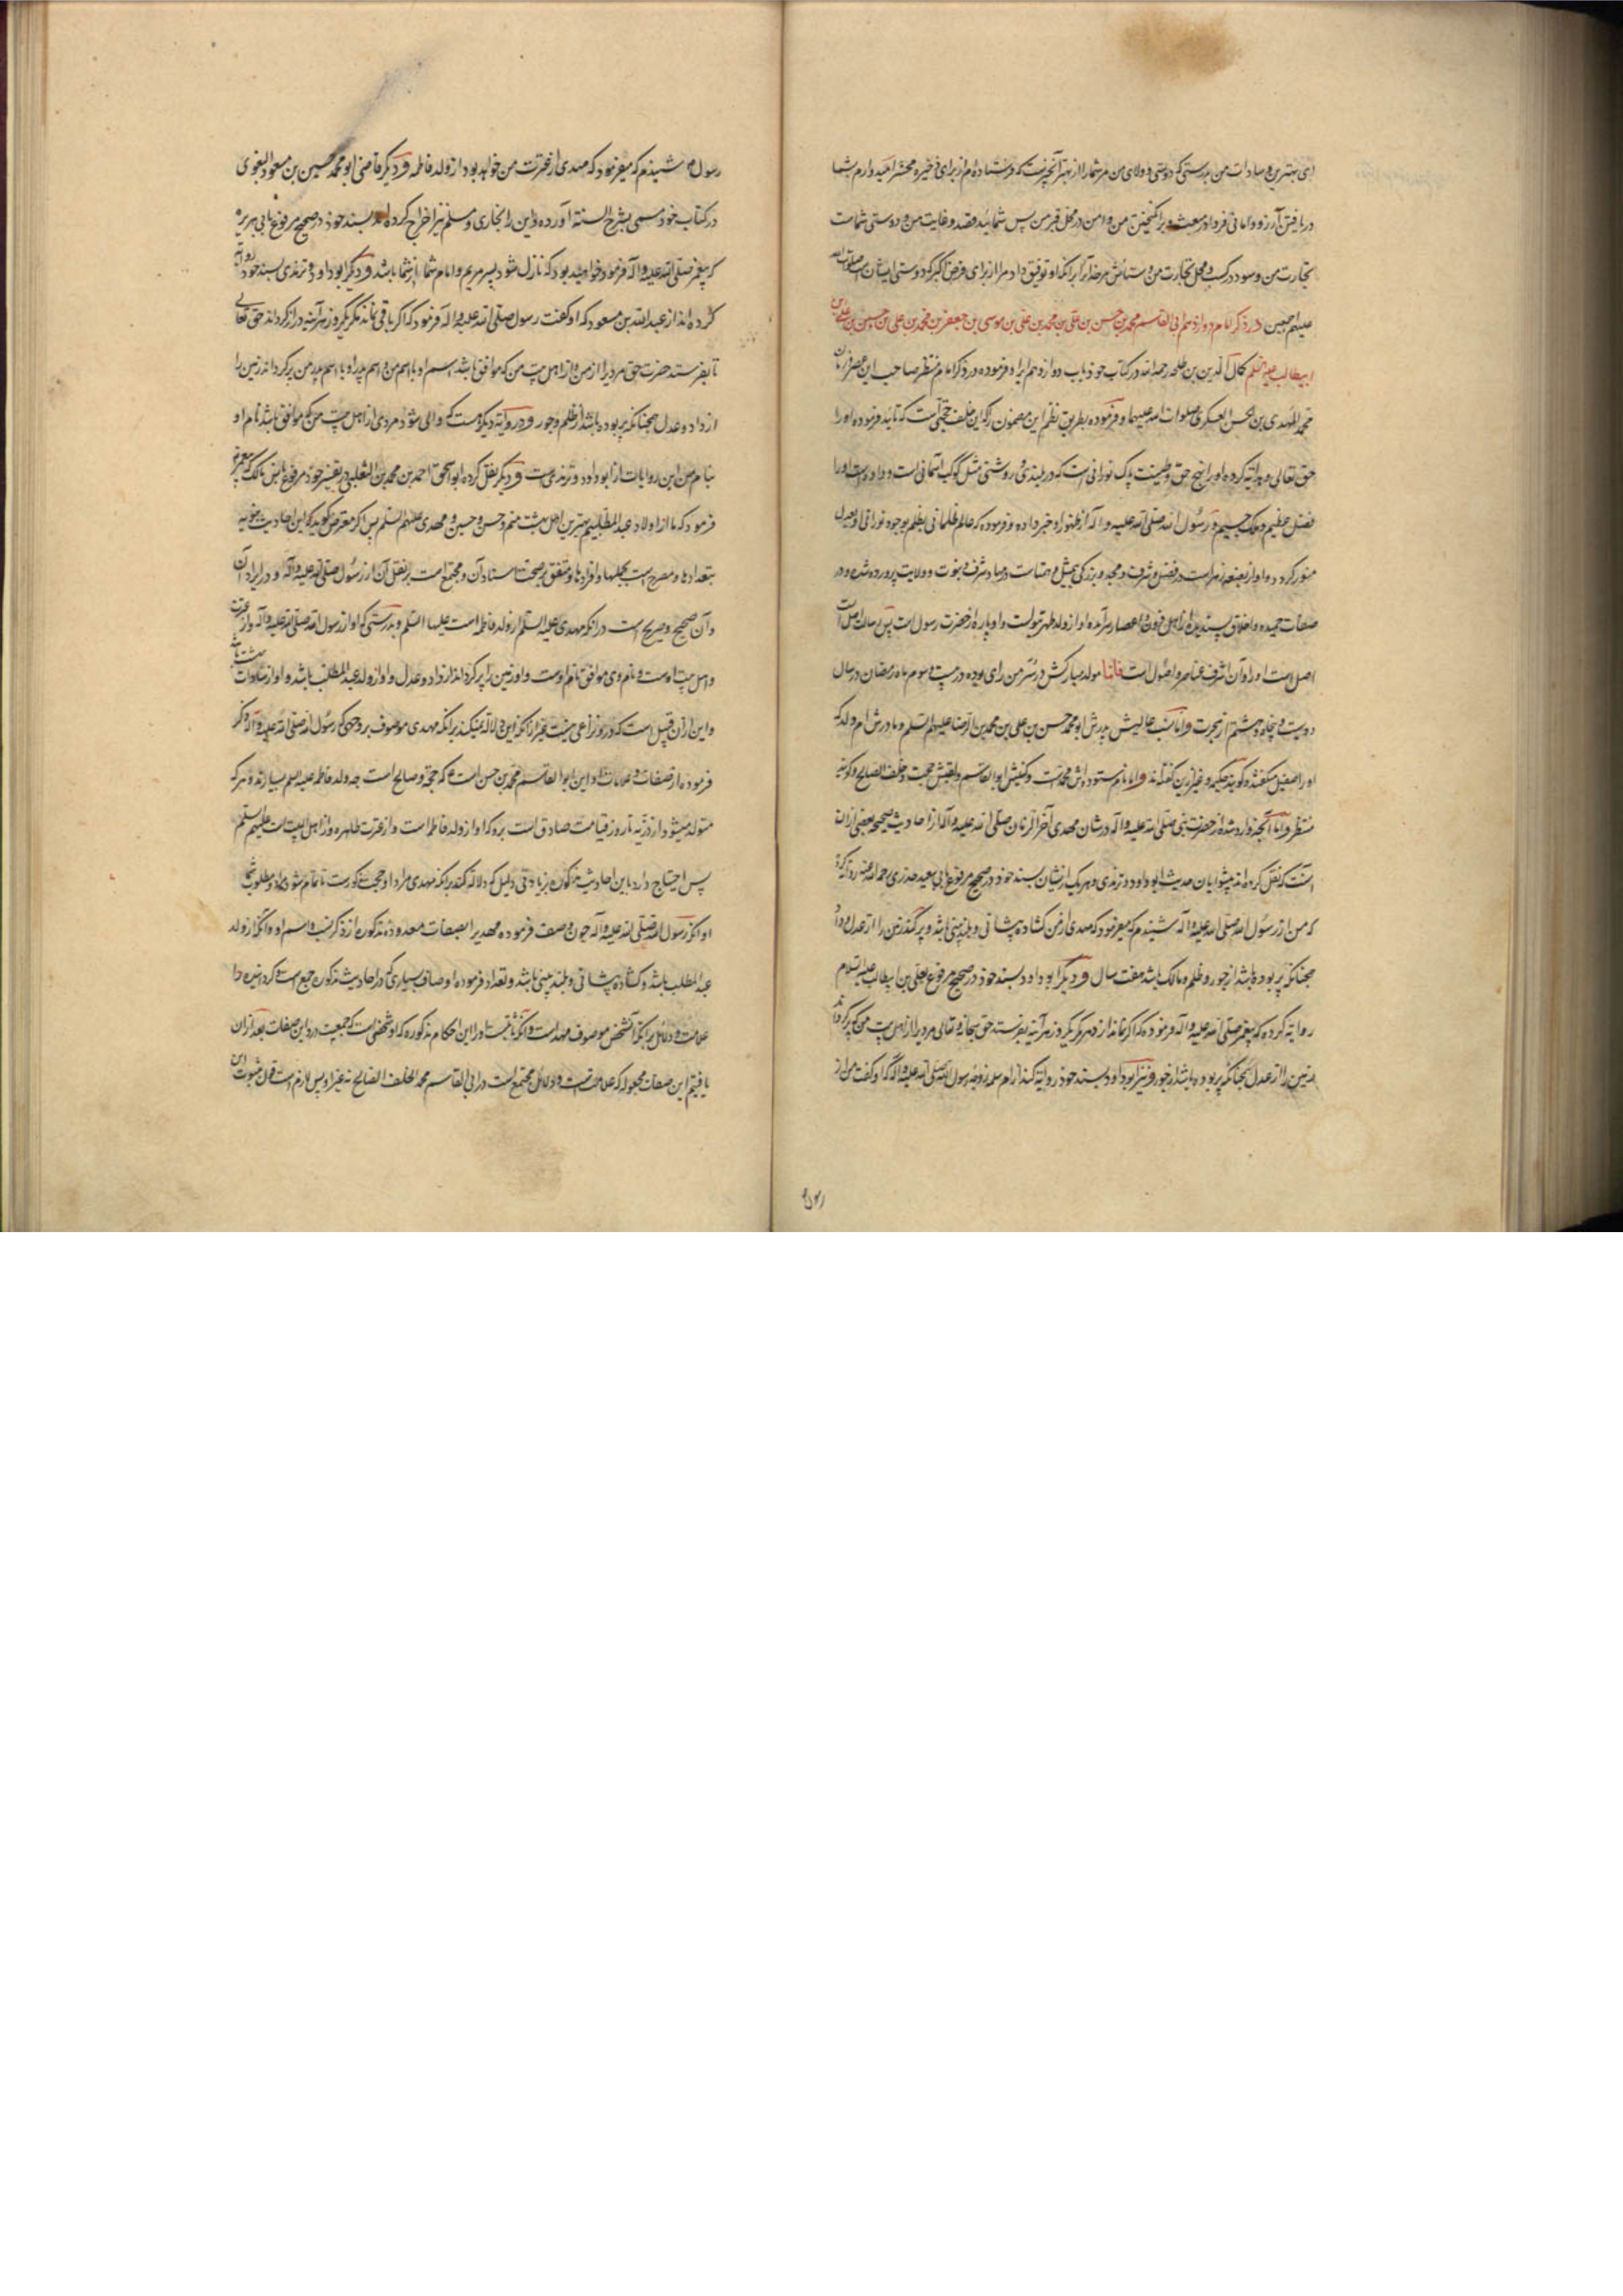 ای بهترین و سادات من بدرستی که دوستی و ولای من مر شما را از بهر آنچیزیست که فرستاده‌ام از برای ذخیره محشر امید وارم شما
دریافتن آرزو و امانی فردا در مبعث و برانگیختن من و امن در محل قبر من پس شمائید قصد و غایت من و دوستی شماست
تجارت من و سود در کسب و محل تجارت من و ستایش مر خدا را برانکه او توفیق داد مرا از برای فرض اکبر که دوستی ایشان است صلوات الله
علیهم اجمعین در ذکر امام دوازدهم ابی القاسم محمد بن حسن بن علی بن محمد بن علی بن موسی بن جعفر بن محمد بن علی بن حسین بن علی بن
ابیطالب علیهم السلم کمال الدین بن طلحه رحمه الله در کتاب خود باب دوازدهم ایراد فرموده در ذکر امام منتظر صاحب این عصر و زمان
محمد المهدی بن الحسن العسکری صلوات الله علیهما و فرموده بطریق نظم این مضمون را که این خلف حجتی است که تائید فرموده او را
حق تعالی و هدایة کرده او را نهج حق و طینت پاک نورانی است که در بلندی و روشنی مثل کوکب آسمانی است و داده است او را
فضل عظیم و ملک جسیم و رسول الله صلی الله علیه و اله از ظهور او خبر داده و فرموده که عالم ظلمانی بظلم بوجود نورانی او بعدل
منور کردد و او از بضعه زهراست در فضل و شرف و مجد و بزرگی بیمثل و همتاست در مهاد شرف نبوت و ولایت پرورده شده و در
صفات حمیده و اخلاق پسندیده از اهل قرون و اعصار سرآمده او از ولد طهر بتولست و او پاره از حضرت رسول است پس رسالت اصل است
اصل است او را و آن اشرف عناصر و اصول است فاما مولد مبارکش در سر من رای بوده در بیست و سوم ماه رمضان در سال
دویست و پنجاه و هشتم از هجرت و اما نسب عالیش پدرش ابو محمد حسن بن علی بن محمد بن الرضا علیهم السلم و مادرش ام ولد که
او را صقیل میگفتند و گویند حکیمه و غیر ازین گفته‌اند و اما نام ستوده اش محمد است و کنیتش ابو القاسم و لقبش حجت و خلف الصالح و گویند
منتظر و اما آنچه وارد شده از حضرت نبی صلی الله علیه و اله در شان مهدی آخر الزمان صلی الله علیه و اله از احادیث صحیحه بعضی از آن
آنست که نقل کرده‌اند پیشوایان حدیث ابو داود و ترمذی و هر یک ازیشان بسند خود در صحیح مرفوع بابی سعید خدری رحمه الله علیه روایة کرد
که من از رسول الله صلی الله علیه و اله شنیدم که میفرمود که مهدی از من گشاده پیشانی و بلند بینی باشد و پر گند زمین را از عدل و داد
چنانکه پر بوده باشد از جور و ظلم و مالک باشد هفت سال و دیگر ابو داود بسند خود در صحیح مرفوع بعلی بن ابیطالب علیه السلام
روایة کرده که پیغمبر صلی الله علیه و اله فرموده که اگر نماند از دهر مگر یکروز هر آینه بفرستد حق سبحانه و تعالی مردیرا از اهل بیت من که پر گرداند
زمین را از عدل همچنانکه پر بوده باشد از جور و نیز ابو داود بسند خود روایة کند از ام سلمه زوجه رسول الله صلی الله علیه و اله که او گفت من از
رسول
رسول ص شنیدم که میفرمود که مهدی از عترت من خواهد بود از ولد فاطمه و دیگر قاضی ابو محمد حسین بن مسعود البغوی
در کتاب خود مسمی بشرح السنه آورده و این را بخاری و مسلم نیز اخراج کرده‌اند بسند خود در صحیح مرفوع بابی هریره
که پیغمبر صلی الله علیه و اله فرمود چون خواهید بود که نازل شود پسر مریم و امام شما از شما باشد و دیگر ابو داود و ترمذی بسند خود روایة
کرده‌اند از عبد الله بن مسعود که او گفت رسول صلی الله علیه و اله فرمود که اگر باقی نماند مگر یکروز هر آینه دراز گرداند حق تعالی
تا بفرستد حضرت حق مردیرا از من و از اهل بیت من که موافق باشد اسم او با اسم من و اسم پدر او با اسم پدر من پر گرداند زمین را
از داد و عدل همچنانکه پر بوده باشد از ظلم و جور و در روایة دیگر هست که والی شود مردی از اهل بیت من که موافق باشد نام او
بنام من این روایات از ابو داود و ترمذی است و دیگر نقل کرده ابو اسحق احمد بن محمد بن الثعلبی در تفسیر خود مرفوع بانس بن مالک که پیغمبر ص
فرمود که ما از اولاد عبد المطلبیم بهترین اهل بهشت منم و حسن و حسین و مهدی علیهم السلم پس اگر معترض گوید که این احادیث نبویه
بتعدادها و مصرح است بجملها و افرادها و متفق بر صحت اسناد آن و مجتمع است بر نقل آن از رسول صلی الله علیه و اله و در ایراد آن
و آن صحیح و صریح است در آنکه مهدی علیه السلم از ولد فاطمه است علیها السلم و بدرستی که او از رسول الله صلی الله علیه و اله و از عترت
و اهل بیت اوست و نام وی موافق نام اوست و او زمین را پر گرداند از داد و عدل و او از ولد عبد المطلب باشد و او از سادات بهشت باشد
و این از آن قبیل است که درو نزاعی نیست غیر از آنکه این دلالة نمیکند برانکه مهدی موصوف بر وجهی که رسول الله صلی الله علیه و اله ذکر
فرموده از صفات و علامات او این ابو القاسم محمد بن حسن است ع که حجة و صالح است چه ولد فاطمه علیها السلم بسیارند و هر که
متولد میشود از ذریه تا روز قیامت صادق است برو که او از ولد فاطمه است و از عترت طاهره و از اهل البیت است علیهم السلم
پس احتیاج دارد باین احادیث مذکوره بزیادتی دلیل که دلالة کند برانکه مهدی مراد او حجت مذکور است تا تمام شود مراد و مطلوب شما
او آنکه رسول الله صلی الله علیه و اله چون وصف فرموده مهدیرا بصفات معدوده مذکوره از ذکر نسب و اسم او و آنکه از ولد
عبد المطلب باشد و گشاده پیشانی و بلند بینی باشد و تعداد فرموده اوصاف بسیاری که در احادیث مذکوره جمع است و گردانیده را
علامت و دلائل برانکه آنشخص موصوف مهد است و آنکه ثابتست او را این احکام مذکوره که او شخصی است که جمعیت درو این صفات بعد از آن
یافتیم این صفات مجعوله که علامت و دلائل مجتمع است در ابی القاسم محمد الخلف الصالح نه غیر او پس لازم است قول بثبوت این